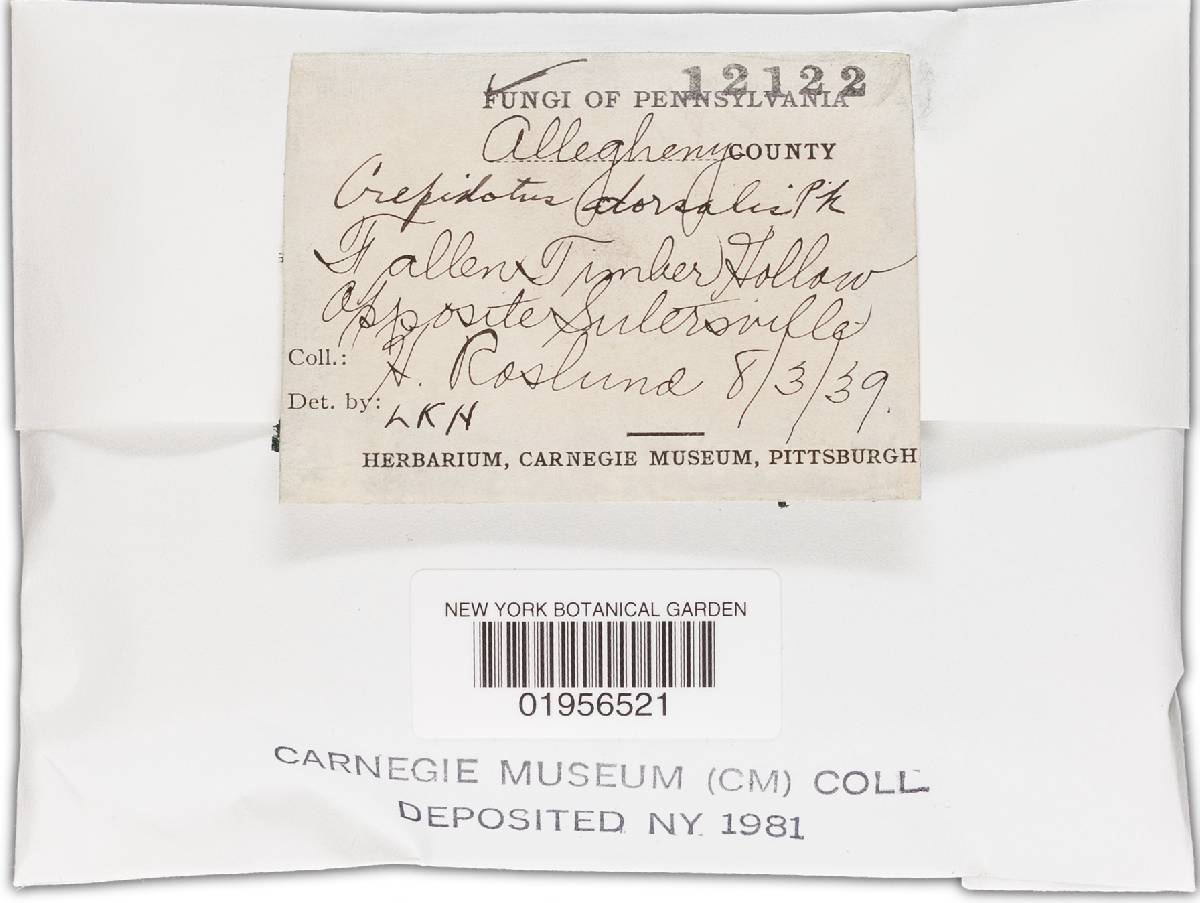 12122
FUNGI OF PENNSYLVANIA
Allegheny COUNTY
Crepidotus dorsalis Pk
Fallen Timber Hollow
opposite Sutersville
Coll.: H. Roslund 8/3/39.
Det. by: LKH
HERBARIUM, CARNEGIE MUSEUM, PITTSBURGH
NEW YORK BOTANICAL GARDEN
01956521
CARNEGIE MUSEUM (CM) COLL.
DEPOSITED NY 1981